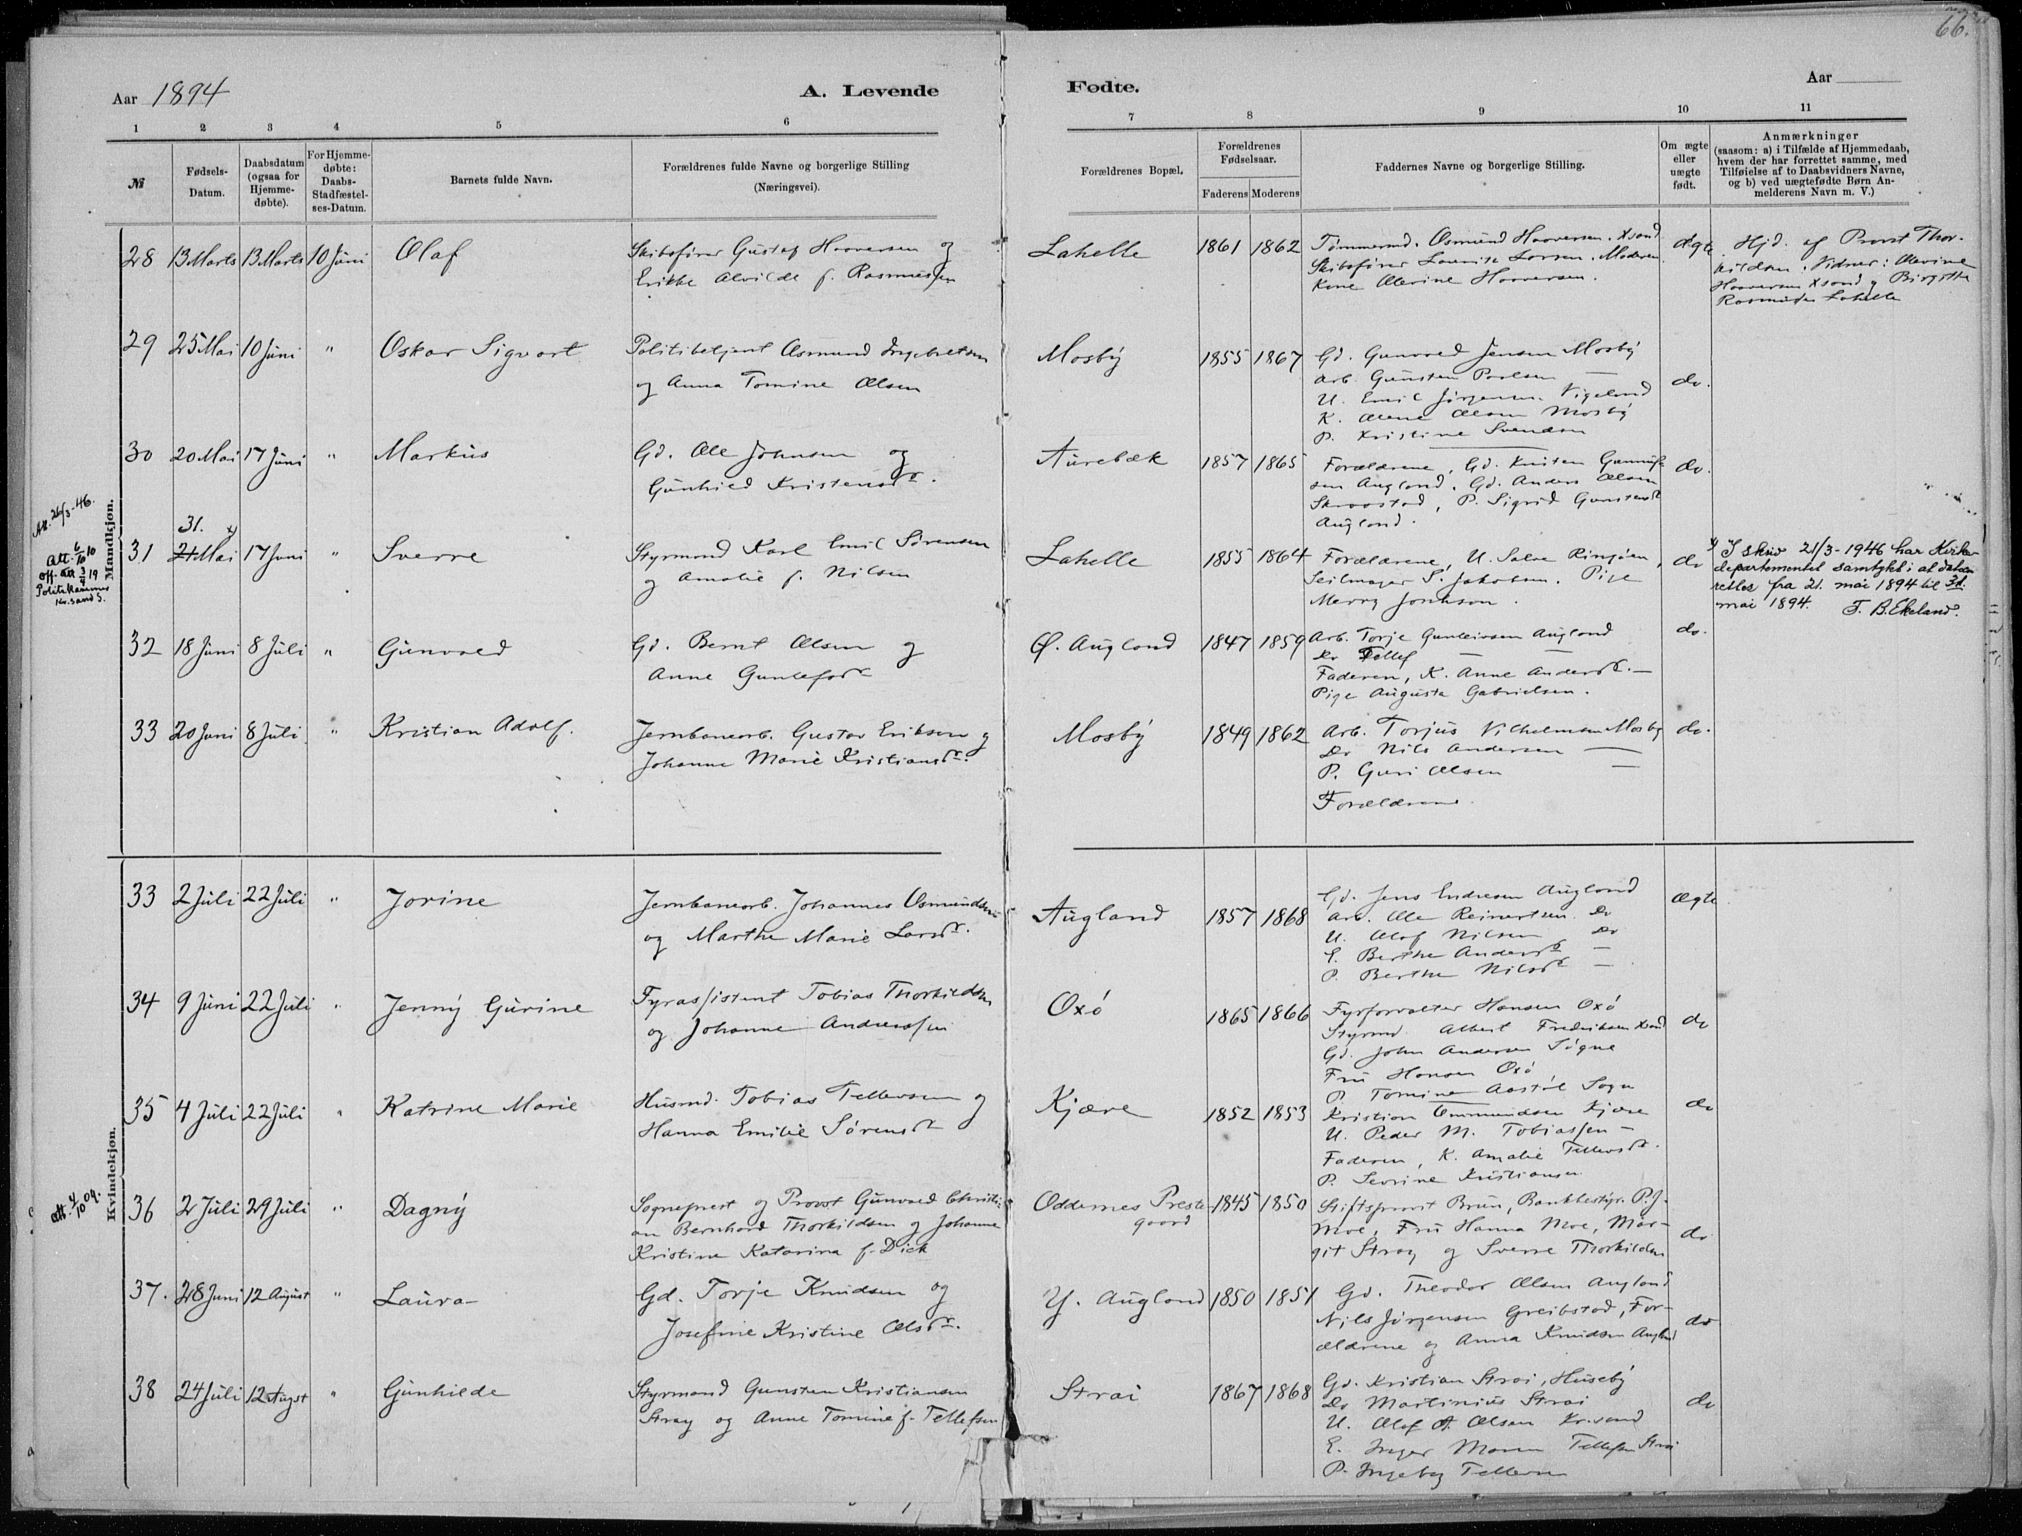 66.
Aar 1894
A. Levende
Fødte.
Aar
1 2 3 4 5 6 7 8 9 10 11
№
Fødsels-
Datum.
Daabsdatum
(ogsaa for
Hjemme-
døbte).
For Hjemme-
døbte:
Daabs-
Stadfæstel-
ses-Datum.
Barnets fulde Navn.
Forældrenes fulde Navne og borgerlige Stilling
(Næringsvei).
Forældrenes Bopæl.
Forældrenes
Fødselsaar.
Faderens Moderens
Faddernes Navne og borgerlige Stilling.
Om ægte
eller
uægte
født.
Anmærkninger
(saasom: a) i Tilfælde af Hjemmedaab,
hvem der har forrettet samme, med
Tilføielse af to Daabsvidners Navne,
og b) ved uægtefødte Børn An-
melderens Navn m. V.)
Mandkjøn.
28 13 Marts 13 Marts 10 Juni Olaf
Skibsfører Gustaf Haaversen og
Erikke Alvilde f. Rasmussen
Lahelle 1861 1862
Tømmermd. Osmund Haaversen. Xsand
Skibsfører Larsen. Moderen
Kone Haaversen.
ægte
Hjd. af Provst Thor-
kildsen. Vidner:
Haaversen Xsand og Birgitte
Lahelle
29 25 Mai 10 Juni " Oskar Sigvart
Politibetjent Asmund Ingebretsen
og Anna Tomine Olsen
Mosby 1855 1867
Gd. Gunvald Jensen Mosby
Arb. Gunsten Paulsen —
U. Emil Jørgensen Vigeland
K. Olene Olsen Mosby
P. Kristine Svendsen
do.
30 20 Mai 17 Juni " Markus
Gd. Ole Johnsen og
Gunhild Kristensdr.
Aurebæk 1857 1865
Forældrene, Gd. Kristen Gunnuf-
sen Augland, Gd. Anders Olsen
P. Sigrid Gunstensdr
Augland.
do.
Att. 26/3-46.
Att. 6/10 10
Off. att 3/4 19
Politikammer
Kr.sand S.
31.
31 21 Mai x) 17 Juni " Sverre
Styrmand Karl Emil Sørensen
og Amalie f. Nilsen
Lahelle 1855 1864
Forældrene, U. Salve Ringøen,
Seilmager S. Jakobsen. Pige
Merry Johnson.
do
x) I skriv 21/3-1946 har Kirke-
departementet samtykt i at datoen
rettes fra 21. mai 1894 til 31.
mai 1894. T. B. Ekeland.
32 18 Juni 8 Juli " Gunvald
Gd. Bernt Olsen og
Anne Gunlefsdr
Ø. Augland 1847 1859
Arb. Torje Gunleivsen Augland
Do Tellef — —
Faderen, K. Anne Andersdr. —
Pige Augusta Gabrielsen.
do.
33 20 Juni 8 Juli " Kristian Adolf.
Jernbanearb. Gustav Eriksen og
Johanne Marie Kristiansdr.
Mosby 1849 1862
Arb. Torjus Vilhelmsen Mosby
Do Nils Andersen —
P. Guri Olsen —
Forældrene.
do.
Kvindekjøn.
33 2 Juli 22 Juli " Jorine
Jernbanearb. Johannes Osmundsen
og Marthe Marie Larsdr.
Augland 1857 1868
Gd. Jens Endresen Augland
Arb. Ole Reinertsen. Do
U. Olaf Nilsen Do
E. Berthe Andersdr —
P. Berthe Nilsdr —
ægte
34 9 Juni 22 Juli " Jenny Gurine
Fyrassistent Tobias Thorkildsen
og Johanne Anderssen
Oxö 1865 1866
Fyrforvalter Hansen Oxö
Styrmd. Albert Fredriksen Xsand
Gd. John Andersen Søgne
Fru Hansen Oxö
P. Tomine Aastøl Sogn
do
35 4 Juli 22 Juli " Katrine Marie
Husmd. Tobias Tellevsen og
Hanna Emilie Sørensdr
Kjære 1852 1853
Kristian Emmundsen Kjære
U. Peder M. Tobiassen —
Faderen, K. Amalie Tellevsdr.
P. Sevrine Kristiansen
do
Att. 4/10 09.
36 2 Juli 29 Juli " Dagny
Sogneprest og Provst Gunvald Christi-
an Bernhard Thorkildsen og Johanne
Kristine Katarina f. Dick
Oddernes Preste-
gaard
1845 1850
Stiftsprovst Brun, Bankbestyr. P. J.
Moe, Fru Hanna Moe, Mar-
git Stray og Sverre Thorkildsen
do
37. 28 Juni 12 August " Laura
Gd. Torje Knudsen og
Josefine Kristine Olsdr.
Y. Augland 1850 1851
Gd. Theodor Olsen Augland
Nils Jørgensen Greibstad, For-
ældrene og Anna Knudsen Augland
do
38 24 Juli 12 Augst " Gunhilde
Styrmand Gunsten Kristiansen
Stray og Anne Tomine f. Tellefsen
Strai 1867 1868
Gd. Kristian Strai, Huseby
Do Martinius Strai
U. Olaf A. Olsen Kr.sand
E. Inger Maren Tellefsen Strai
P. Ingeborg Tellevsen
do